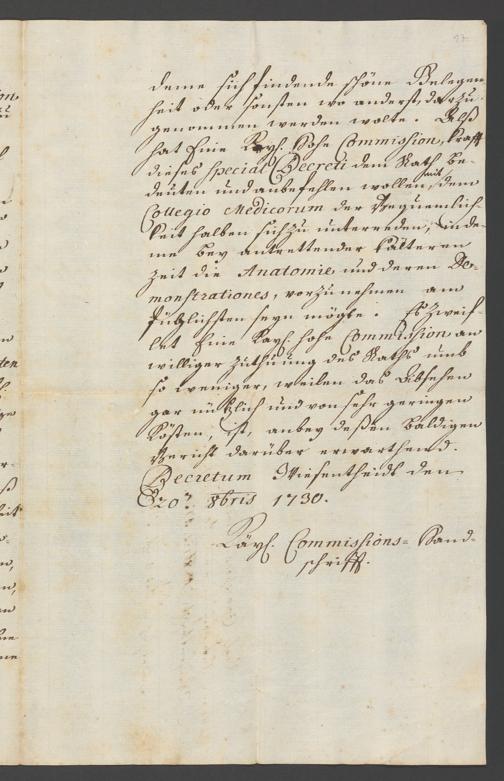 27
deme sich findende schöne Gelegen-
heit oder sonsten wo anderst, darzu
genommen werden wolte. Alß
hat Eine Kayl. hohe Commission, krafft
dieses special Decreti dem Rath be-
deuten und anbefehlen wollen, mit dem
Collegio Medicorum der Bequemlich-
keit halben sich zu unterreden, inde-
me bey antrettender kälteren
Zeit die Anatomie und deren De-
monstrationes, vorzunehmen am
füglichsten seyn mögte. Es zweif-
let Eine Kayl. hohe Commission an
williger Zuthuung des Raths umb
so weniger, weilen das Absehen
gar nützlich und von sehr geringen
Kösten, ist, anbey deßen baldigen
Bericht darüber erwarthend.
Decretum Wiesentheidt den
20. 8bris 1730.
Käyl. Commissions- Hand-
schrifft.